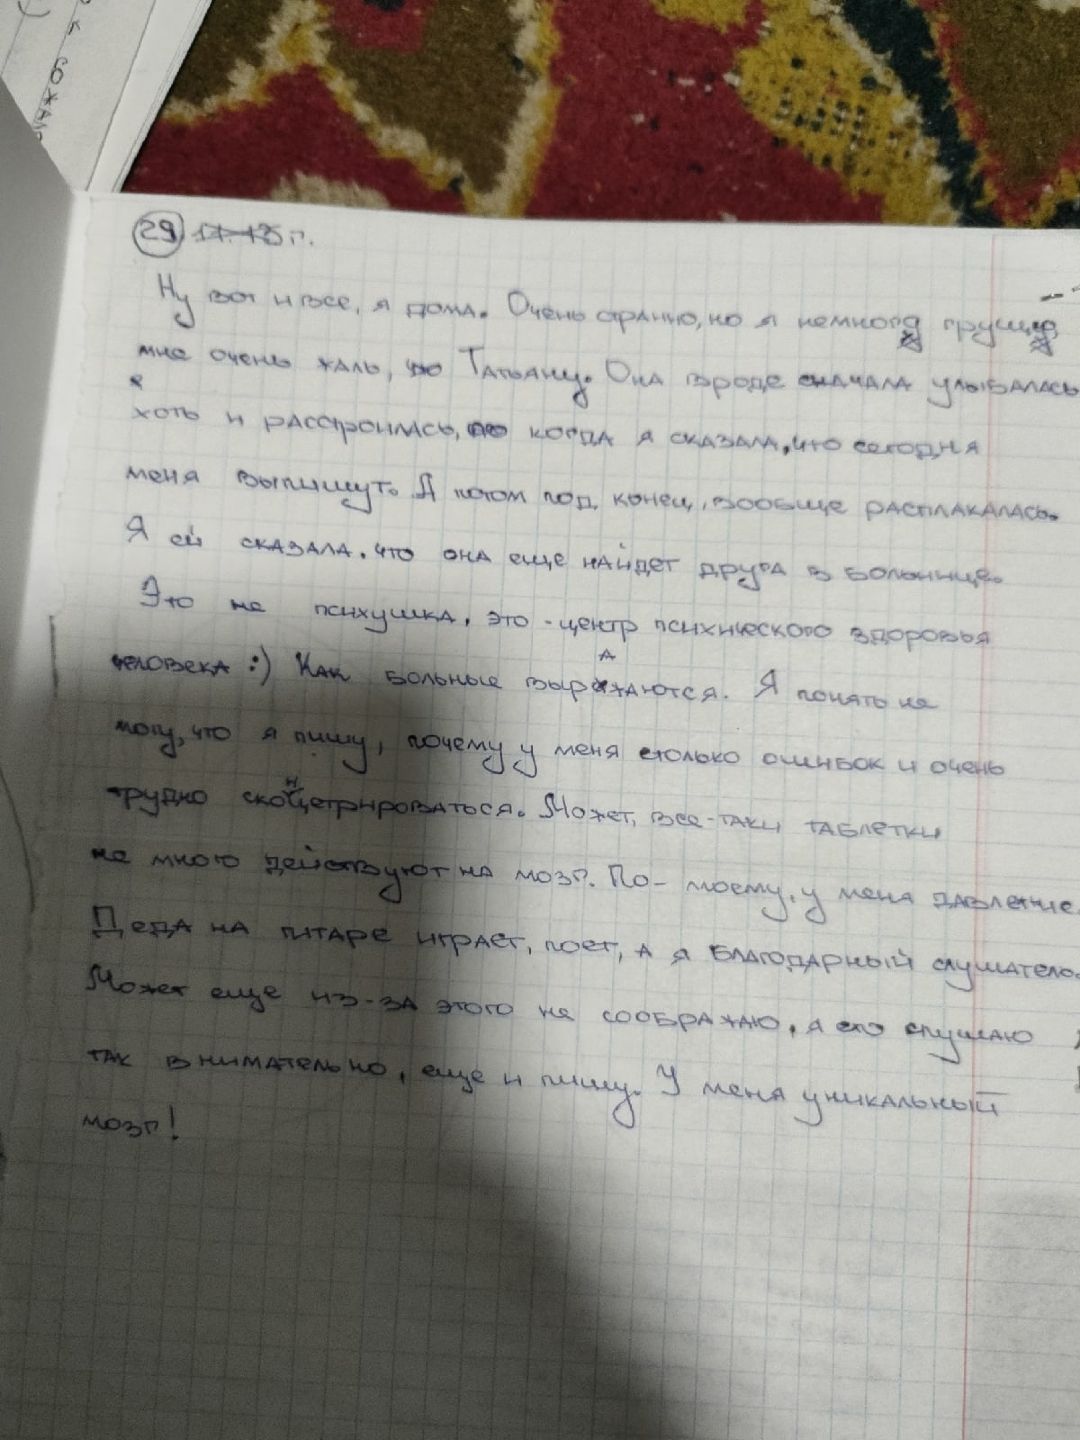 сожал
29 г.
Ну вот и все, я дома. Очень странно, но я немного грущу,
мне очень жаль, Татьяну. Она вроде сначала улыбалась
хоть и расстроилась, когда я сказала, что сегодня
меня выпишут. А потом под конец, вообще расплакалась.
Я ей сказала, что она еще найдет друга в больнице.
Это не психушка, это - центр психического здоровья
человека :) Как больные выражаются. Я понять не
могу, что я пишу, почему у меня столько ошибок и очень
трудно сконцетрироваться. Может, все-таки таблетки
не много действуют на мозг. По- моему, у меня давление.
Деда на гитаре играет, поет, а я благодарный слушатель.
Может еще из-за этого не соображаю, я его слушаю
так внимательно, еще и пишу. У меня уникальный
мозг!